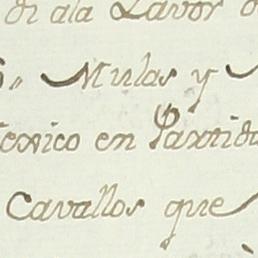 di ala Lavor
Mulas y
exico en Partid
Cavallos que